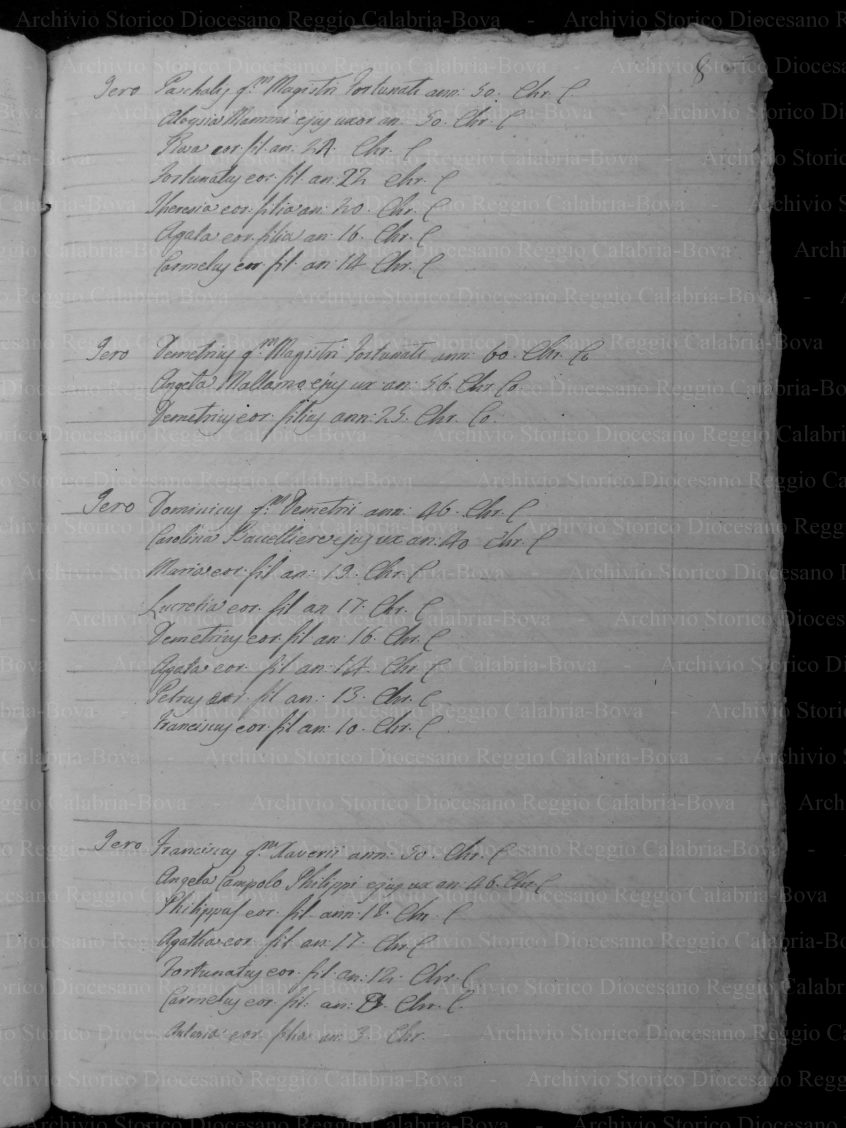 8
Iero Paschalis q.m Magistri Fortunati ann: 50. Chr. C
Aloysia Mammì ejus uxor an. 50. Chr. C
Rosa eor. fil. an. 24. Chr. C
Fortunatus eor. fil. an: 22 Chr. C
Theresia eor. filia an: 20. Chr. C
Agata eor. filia an: 16. Chr. C
Carmelus eor. fil. an: 14 Chr. C
Iero Demetrius q.m Magistri Fortunati ann: 60. Chr. Co
Angela ejus ux an: 56. Chr. Co.
Demetrius eor: filius ann: 25. Chr. Co.
Iero Dominicus q.m Demetrii ann: 46. Chr. C
Carolina ejus ux an: 40 Chr. C
Maria eor. fil. an: 19. Chr. C
Lucretia eor. fil. an 17. Chr. C
Demetrius eor. fil. an: 16. Chr. C
Agata eor. fil. an: 14. Chr. C
Petrus eor. fil. an: 13. Chr. C
Franciscus eor. fil. an: 10. Chr. C
Iero Franciscus q.m Xaverii ann: 50. Chr. C
Angela Campolo Philippi ejus ux an: 46. Chr. C
Philippus eor. fil. ann: 18. Chr. C
Agatha eor. fil. an: 17. Chr. C
Fortunatus eor. fil. an: 12. Chr. C
Carmelus eor. fil. an: Chr. C.
Antonia eor. filia an: 3. Chr.
Archivio Storico Diocesano Reggio Calabria-Bova